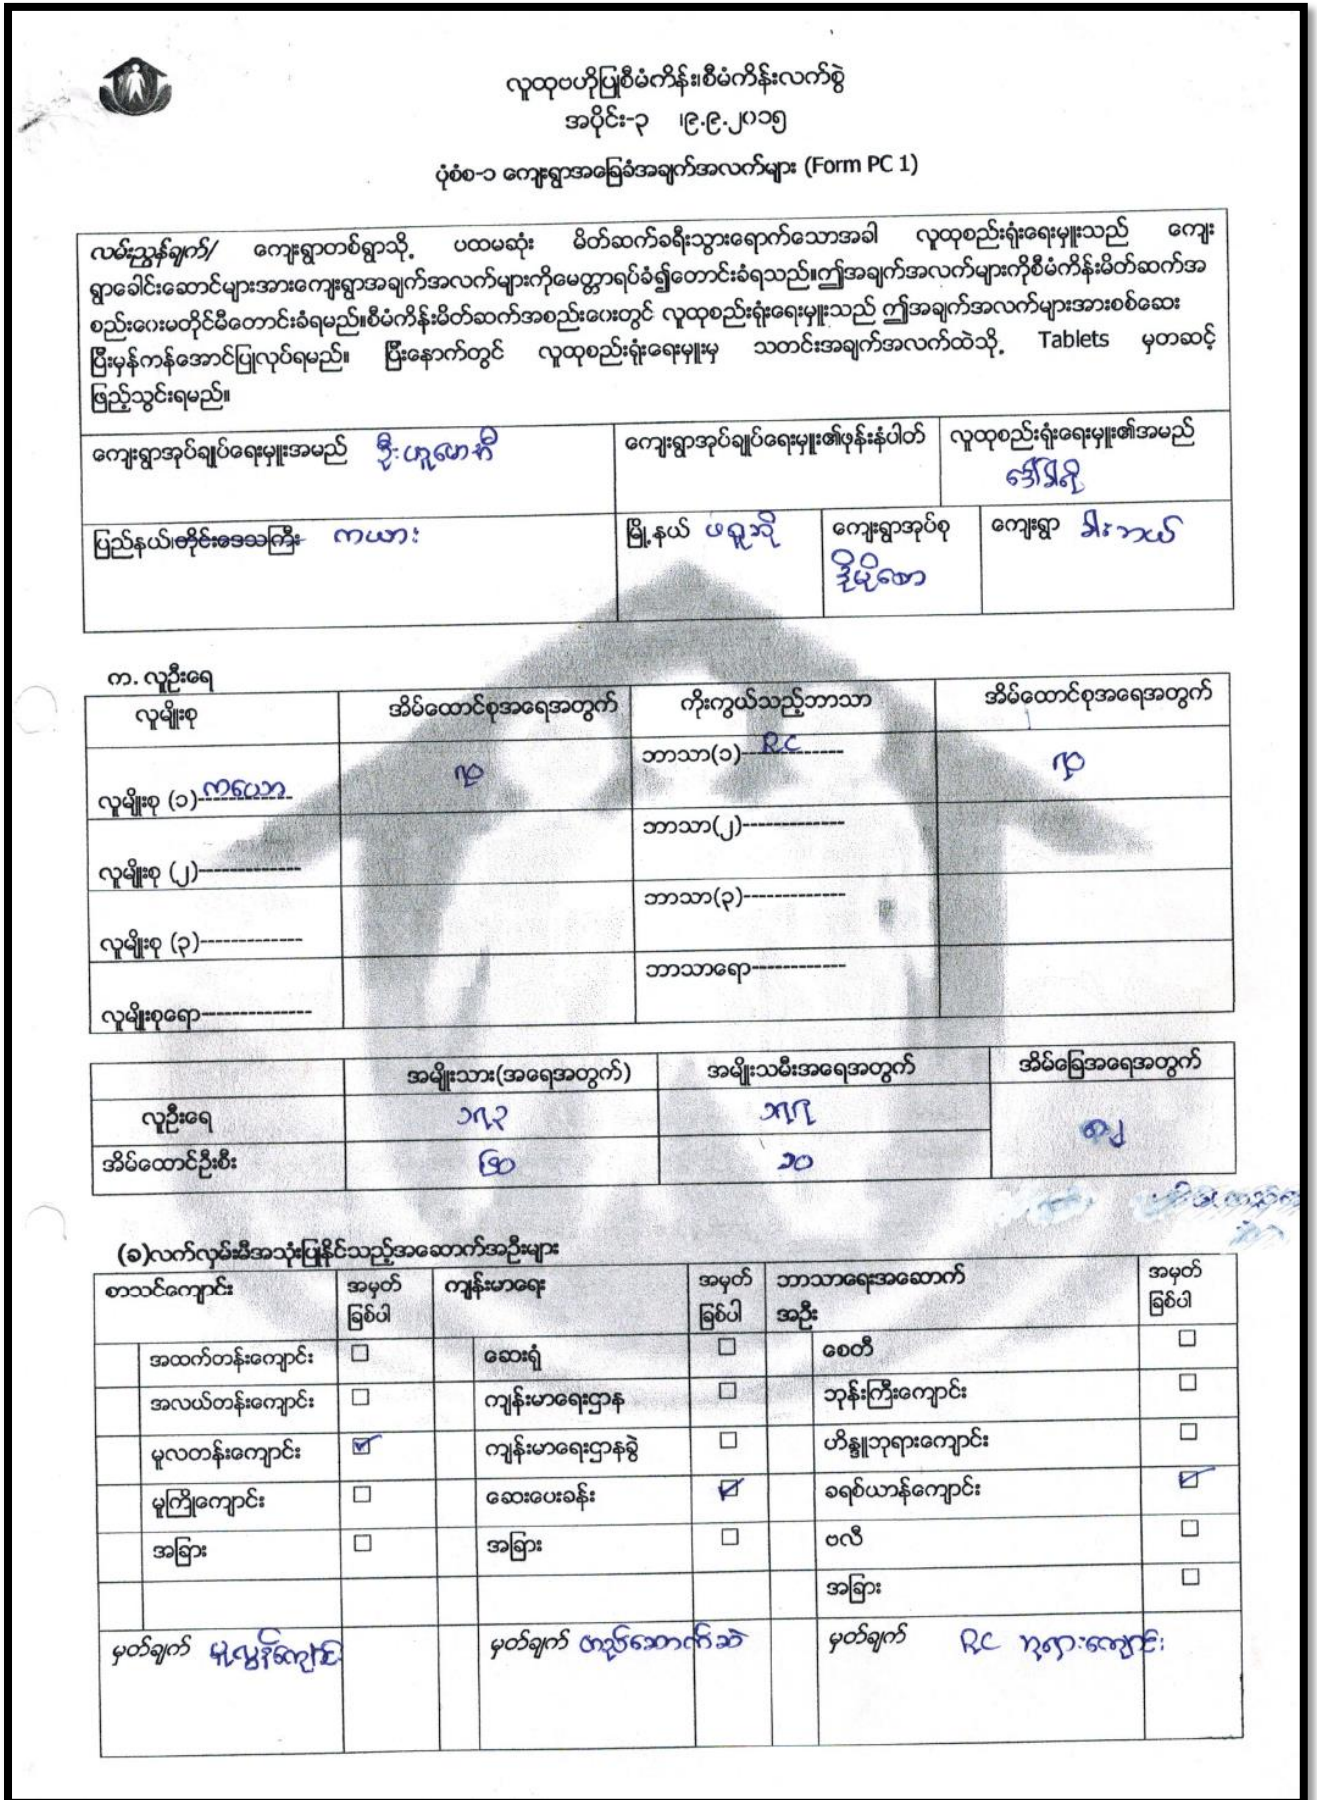 လူထုဗဟိုပြုစီမံကိန်း၊စီမံကိန်းလက်စွဲ
အပိုင်း-၃ ၊၉.၉.၂၀၁၅
ပုံစံစ-၁ ကျေးရွာအခြေခံအချက်အလက်များ (Form PC 1)
လမ်းညွှန်ချက်/ ကျေးရွာတစ်ရွာသို့ ပထမဆုံး မိတ်ဆက်ခရီးသွားရောက်သောအခါ လူထုစည်းရုံးရေးမှူးသည် ကျေး
ရွာခေါင်းဆောင်များအားကျေးရွာအချက်အလက်များကိုမေတ္တာရပ်ခံ၍တောင်းခံရသည်။ဤအချက်အလက်များကိုစီမံကိန်းမိတ်ဆက်အ
စည်းဝေးမတိုင်မီတောင်းခံရမည်။စီမံကိန်းမိတ်ဆက်အစည်းဝေးတွင် လူထုစည်းရုံးရေးမှူးသည် ဤအချက်အလက်များအားစစ်ဆေး
ပြီးမှန်ကန်အောင်ပြုလုပ်ရမည်။ ပြီးနောက်တွင် လူထုစည်းရုံးရေးမှူးမှ သတင်းအချက်အလက်ထဲသို့ Tablets မှတဆင့်
ဖြည့်သွင်းရမည်။
ကျေးရွာအုပ်ချုပ်ရေးမှူးအမည် ဦး ကျေးရွာအုပ်ချုပ်ရေးမှူး၏ဖုန်းနံပါတ် လူထုစည်းရုံးရေးမှူး၏အမည်
ပြည်နယ်၊တိုင်းဒေသကြီး ကယား မြို့နယ် ဖရူဆို ကျေးရွာအုပ်စု ကျေးရွာ
က. လူဦးရေ
လူမျိုးစု အိမ်ထောင်စုအရေအတွက် ကိုးကွယ်သည့်ဘာသာ အိမ်ထောင်စုအရေအတွက်
လူမျိုးစု (၁) ကယော ၇၀ ဘာသာ(၁) RC ၇၀
လူမျိုးစု (၂)------------- ဘာသာ(၂)-------------
လူမျိုးစု (၃)------------- ဘာသာ(၃)-------------
လူမျိုးစုရော-------------- ဘာသာရော------------
အမျိုးသား(အရေအတွက်) အမျိုးသမီးအရေအတွက် အိမ်ခြေအရေအတွက်
လူဦးရေ ၁၇၃ ၁၇၇
အိမ်ထောင်ဦးစီး ၆၀ ၁၀
(ခ)လက်လှမ်းမီအသုံးပြုနိုင်သည့်အဆောက်အဦးများ
စာသင်ကျောင်း အမှတ်ခြစ်ပါ ကျန်းမာရေး အမှတ်ခြစ်ပါ ဘာသာရေးအဆောက်အဦး အမှတ်ခြစ်ပါ
အထက်တန်းကျောင်း ☐ ဆေးရုံ ☐ စေတီ ☐
အလယ်တန်းကျောင်း ☐ ကျန်းမာရေးဌာန ☐ ဘုန်းကြီးကျောင်း ☐
မူလတန်းကျောင်း ☑ ကျန်းမာရေးဌာနခွဲ ☐ ဟိန္ဒူဘုရားကျောင်း ☐
မူကြိုကျောင်း ☐ ဆေးပေးခန်း ☑ ခရစ်ယာန်ကျောင်း ☑
အခြား ☐ အခြား ☐ ဗလီ ☐
အခြား ☐
မှတ်ချက် မူလွန်ကျောင်း မှတ်ချက် တည်ဆောက်ဆဲ မှတ်ချက် RC ဘုရားကျောင်း